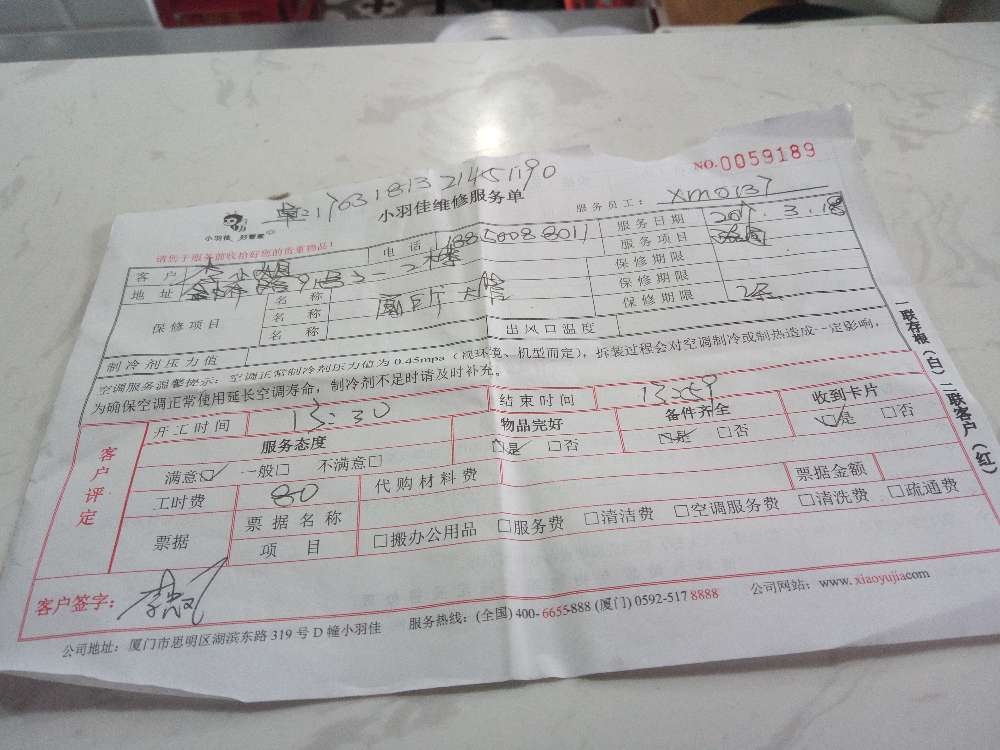 NO.0059189
17631813 21451190
小羽佳维修服务单
服务员工： XM0137
小羽佳 好管家
请您于服务前收拾好您的贵重物品！
客户 电话 13850088011 服务日期 3.18
地址 服务项目
保修项目 名称 保修期限
名称 保修期限
名称 保修期限
制冷剂压力值 出风口温度
空调服务温馨提示：空调正常制冷剂压力值为0.45mpa（视环境、机型而定），拆装过程会对空调制冷或制热造成一定影响，
为确保空调正常使用延长空调寿命，制冷剂不足时请及时补充。
客户评定 开工时间 13:30 结束时间 13:59
服务态度 物品完好 备件齐全 收到卡片
满意□ 一般□ 不满意□ □是 □否 □是 □否 □是 □否
工时费 80 代购材料费 票据金额
票据 票据名称
项目 □搬办公用品 □服务费 □清洁费 □空调服务费 □清洗费 □疏通费
客户签字：
公司地址：厦门市思明区湖滨东路319号D幢小羽佳 服务热线：(全国)400-6655-888 (厦门)0592-517 8888 公司网站：www.xiaoyujia.com
一联存根（白）二联客户（红）